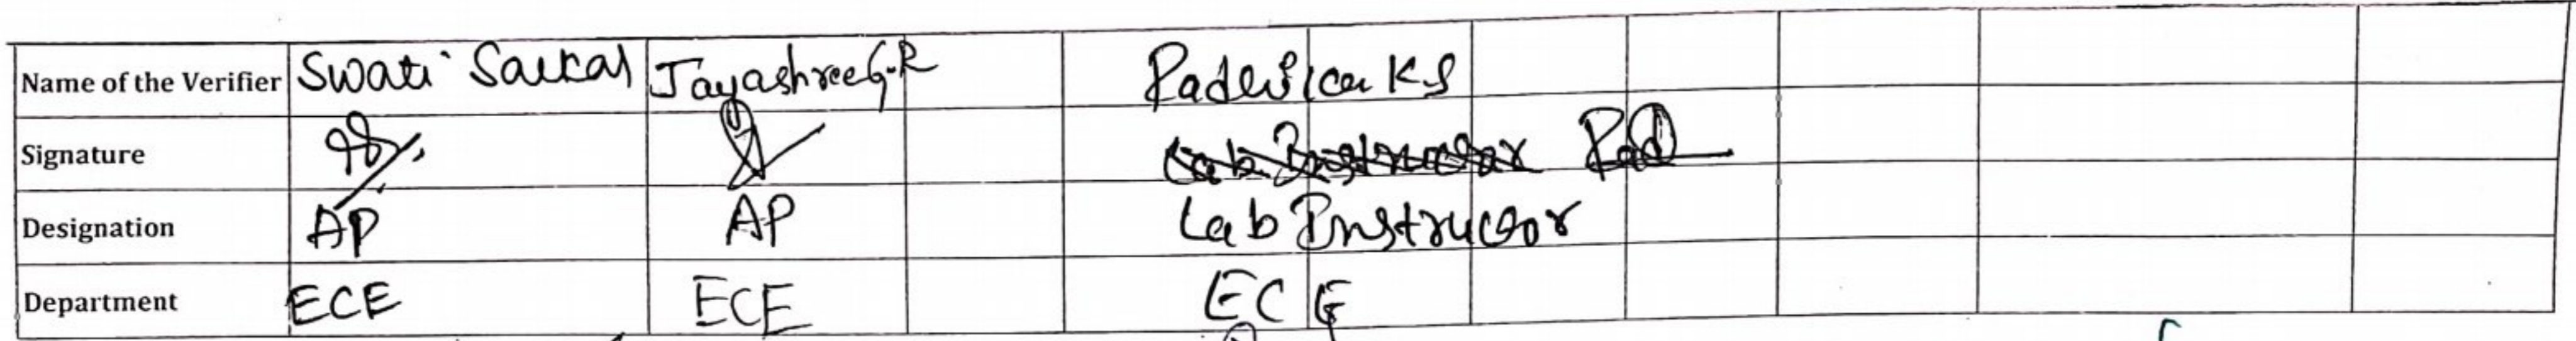 Name of the Verifier Swati Sarkar Jayashree G.R KS
Signature Lab Instructor
Designation AP AP Lab Instructor
Department ECE ECE ECE